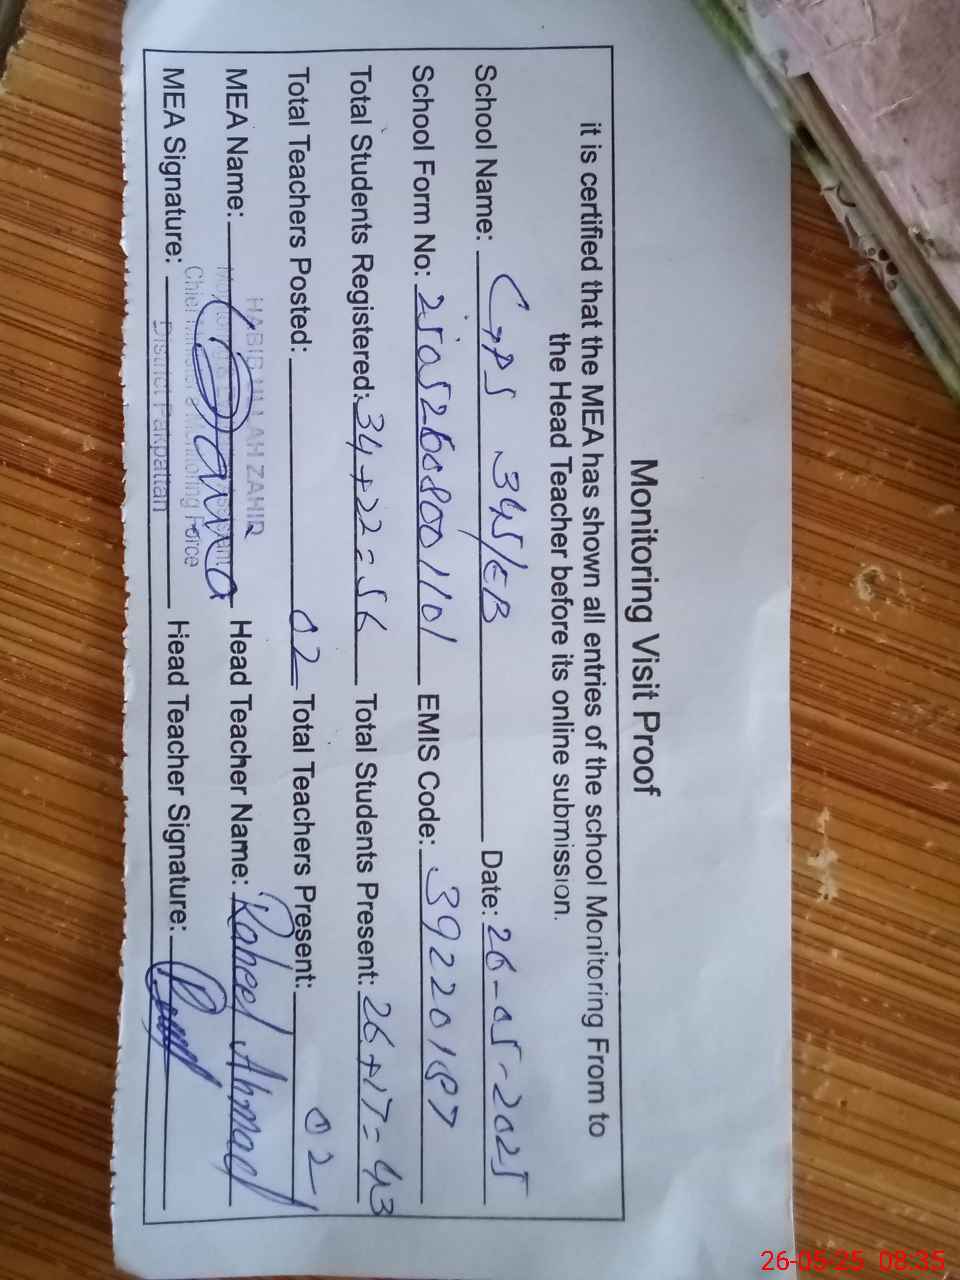 Monitoring Visit Proof
it is certified that the MEA has shown all entries of the school Monitoring From to
the Head Teacher before its online submission.
School Name: GPS 345/EB Date: 26-05-2025
School Form No: 25052608001101 EMIS Code: 39220187
Total Students Registered: 34+22=56 Total Students Present: 26+17=43
Total Teachers Posted: 02 Total Teachers Present: 02
MEA Name: Head Teacher Name: Raheel Ahmad
MEA Signature: Head Teacher Signature:
HABIB ULLAH ZAHIR
Chief Minister's Monitoring Force
District Pakpattan
26-05-25 08:35